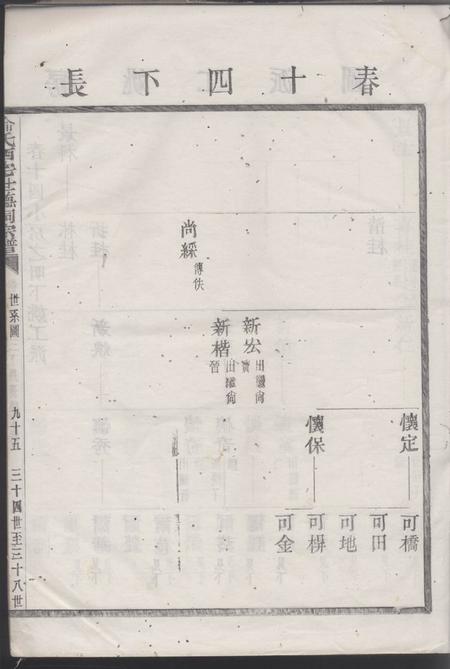 春十四下長
懷定
可橋
可田
可地
懷保
可栟
可金
新宏
出繼尙賓
新楷
出繼尙晉
尚綵
傳佚
世系圖
九十五
三十四世至三十八世